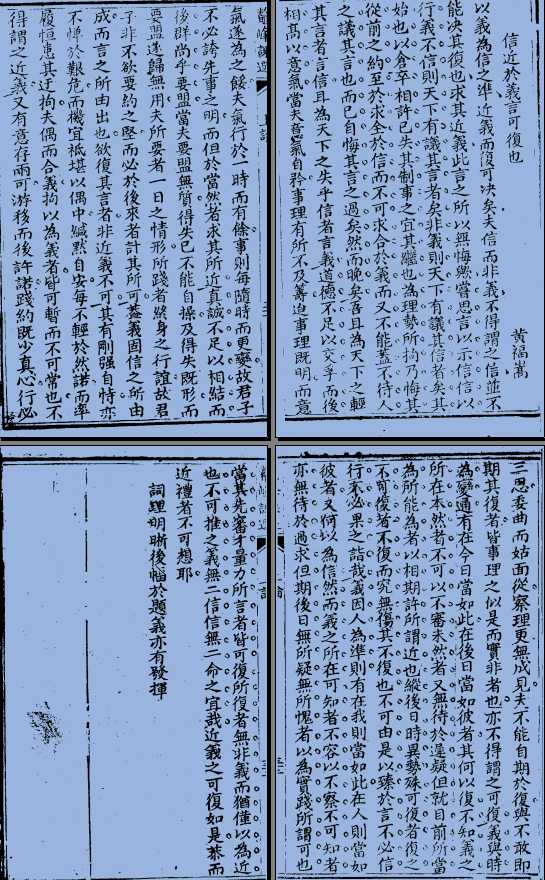 信近於義言可復也
黃福嵩
以義為信之準近義而復可決矣夫信而非義不得謂之信並不
能決其復也求其近義此言之所以無悔歟嘗思言以示信信以
行義不信則天下有議其言者矣非義則天下有議其信者矣其
始也以倉卒相許已失其制事之宜其繼也為理勢所拘乃悔其
從前之約至於求全於信而不可求合於義而又不能蓋不待人
之議其言也而已自悔其言之過矣然而晚矣吾且為天下之輕
其言者言信且為天下之失乎信者言義道德不足以交孚而後
相高以意氣當夫意氣自矜事理有所不及籌迨事理既明而意
氣遂為之餒夫氣行於一時而有餘事則每隨時而更變故君子
不必誇先事之明而但於當然者求其所近真誠不足以相結而
後群尚乎要盟當夫要盟無質得失已不能自操及得失既形而
要盟遂歸無用夫所要者一日之情形所踐者終身之行誼故君
子非不欲要約之堅而必於後來者計其所可蓋義固信之所由
成而言之所由出也欲復其言者非近義不可其有剛强自恃亦
不憚於艱危而機宜柢堪以偶中緘默自安每不輕於然諾而率
履恒患其迂拘夫偶而合義拘以為義者皆可暫而不可常也不
得謂之近義又有意存兩可游移而後許諾踐約既少真心行必
三思委曲而姑面從察理更無成見夫不能自期於復與不敢即
期其復者皆事理之似是而實非者也亦不得謂之可復義與時
為變通有在今日當如此在後日當如彼者其何以復不知義之
所在本然者不可以不審未然者又無待於遲疑但就目前所當
為所能為者以相期許所謂近也縱後日時異勢殊可復者復之
不可復者不復而究無傷其不復也不可由是以臻於言不必信
行不必果之詣哉義因人為準則有在我則當如此在人則當如
彼者又何以為信然而義之所在可知者不容以不察不可知者
亦無待於過求但期後日無所疑無所愧者以為實踐所謂可也
當其先審才量力所言者皆可復所復者無非義而猶僅以為近
也不可推之義無二信信無二命之宜哉近義之可復如是恭而
近禮者不可想耶
詞理明晰後幅於題義亦有發揮